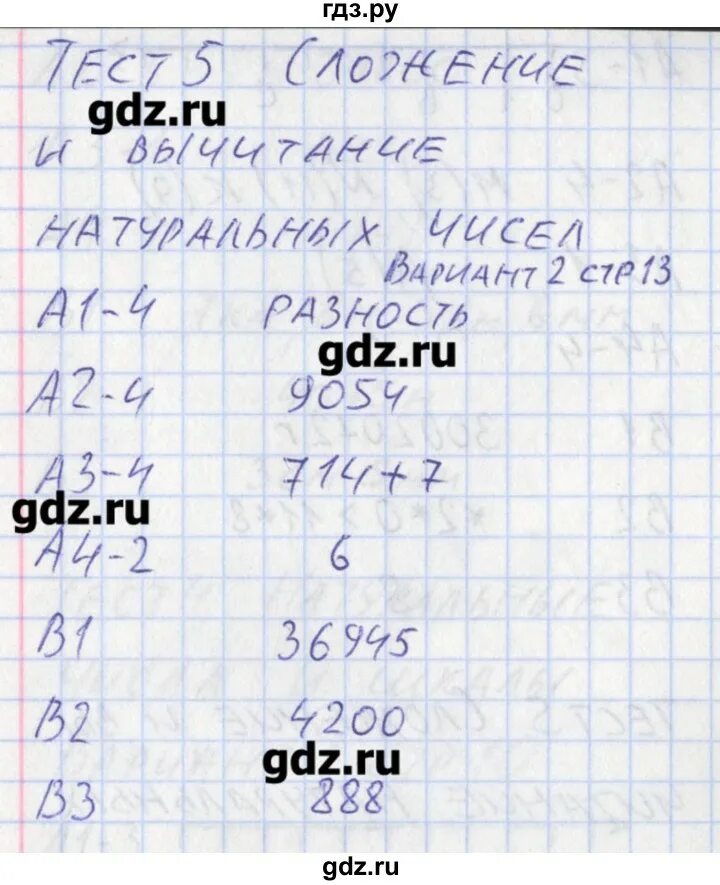 гдз.ру
ТЕСТ 5 СЛОЖЕНИЕ
gdz.ru
И ВЫЧИТАНИЕ
НАТУРАЛЬНЫХ ЧИСЕЛ
ВАРИАНТ 2 СТР 13
А1-4 РАЗНОСТЬ
gdz.ru
А2-4 9054
А3-4 714+7
gdz.ru
А4-2 6
В1 36945
В2 4200
gdz.ru
В3 888
gdz.ru